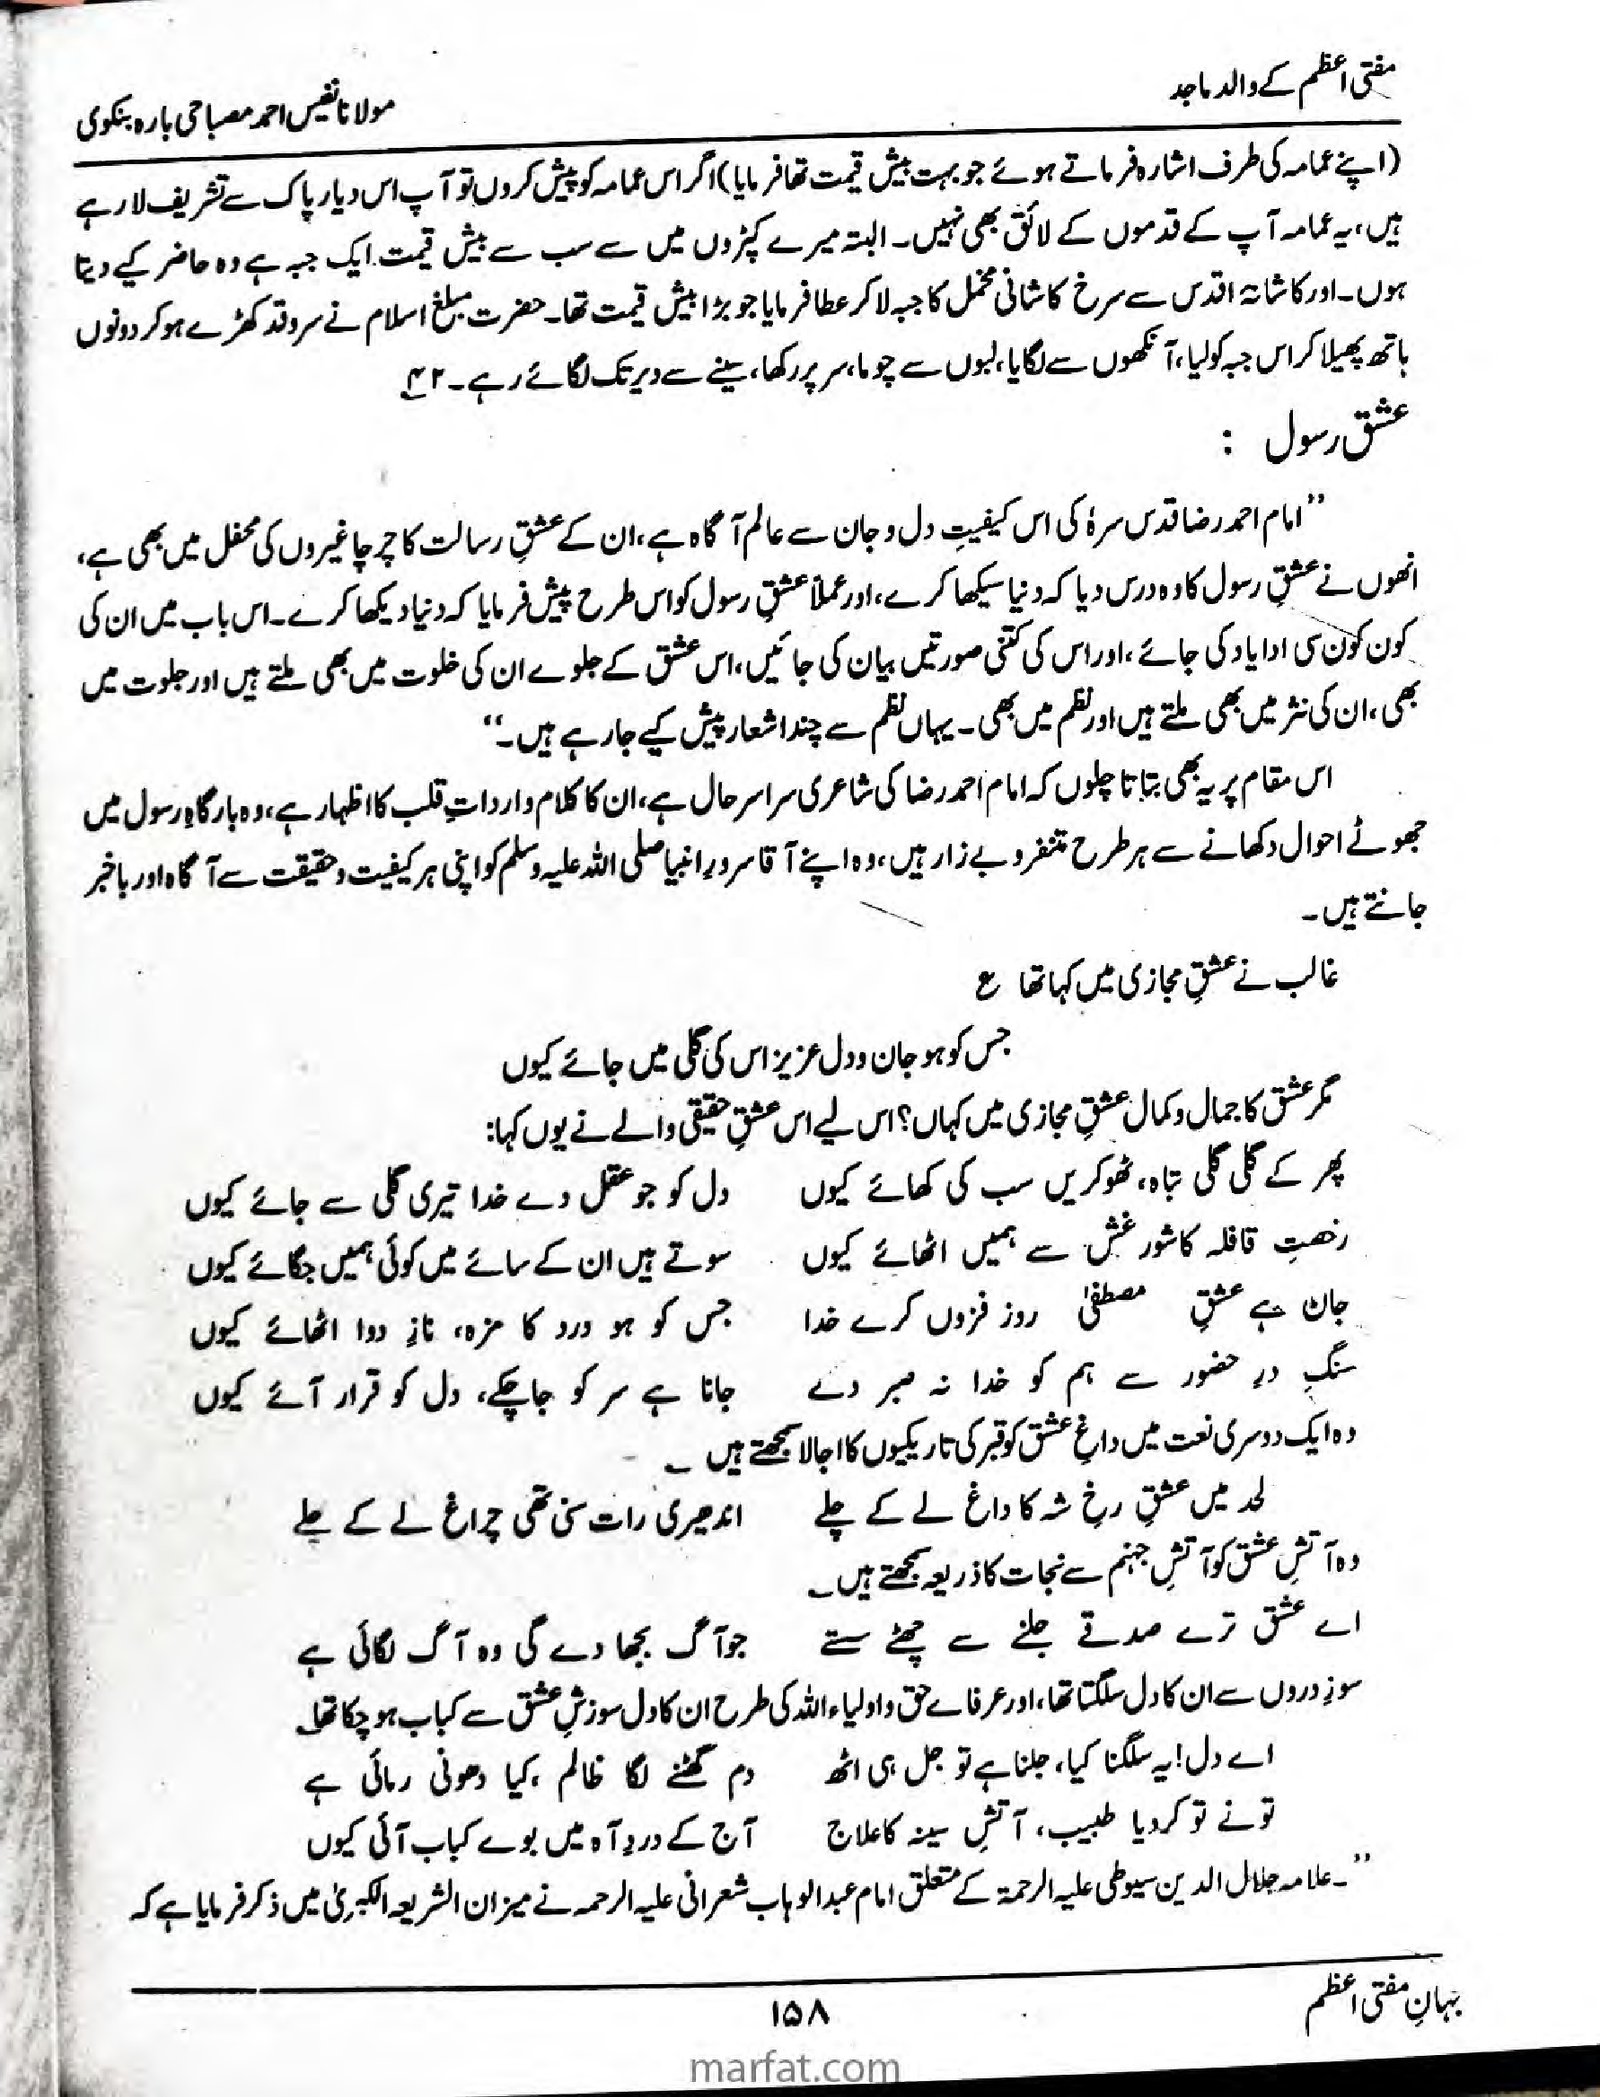 مفتی اعظم کے والد ماجد
مولانا نفیس احمد مصباحی بارہ بنکوی
(اپنے عمامہ کی طرف اشارہ فرماتے ہوئے جو بہت بیش قیمت تھا فرمایا) اگر اس عمامہ کو پیش کروں تو آپ اس دیار پاک سے تشریف لا رہے
ہیں، یہ عمامہ آپ کے قدموں کے لائق بھی نہیں۔ البتہ میرے کپڑوں میں سے سب سے بیش قیمت ایک جبہ ہے وہ حاضر کیے دیتا
ہوں۔ اور کاشانۂ اقدس سے سرخ کاشانی مخمل کا جبہ لا کر عطا فرمایا جو بڑا بیش قیمت تھا۔ حضرت مبلغ اسلام نے سروقد کھڑے ہو کر دونوں
ہاتھ پھیلا کر اس جبہ کو لیا، آنکھوں سے لگایا، لبوں سے چوما، سر پر رکھا، سینے سے دیر تک لگائے رہے۔ ۴۲؎
عشق رسول :
”امام احمد رضا قدس سرہٗ کی اس کیفیتِ دل و جان سے عالم آگاہ ہے، ان کے عشقِ رسالت کا چرچا غیروں کی محفل میں بھی ہے،
انھوں نے عشقِ رسول کا وہ درس دیا کہ دنیا سیکھا کرے، اور عملاً عشقِ رسول کو اس طرح پیش فرمایا کہ دنیا دیکھا کرے۔ اس باب میں ان کی
کون کون سی ادا یاد کی جائے، اور اس کی کتنی صورتیں بیان کی جائیں، اس عشق کے جلوے ان کی خلوت میں بھی ملتے ہیں اور جلوت میں
بھی، ان کی نثر میں بھی ملتے ہیں اور نظم میں بھی۔ یہاں نظم سے چند اشعار پیش کیے جا رہے ہیں۔“
اس مقام پر یہ بھی بتاتا چلوں کہ امام احمد رضا کی شاعری سراسر حال ہے، ان کا کلام وارداتِ قلب کا اظہار ہے، وہ بارگاہِ رسول میں
جھوٹے احوال دکھانے سے ہر طرح متنفر و بے زار ہیں، وہ اپنے آقا سرورِ انبیا صلی اللہ علیہ وسلم کو اپنی ہر کیفیت و حقیقت سے آگاہ اور باخبر
جانتے ہیں۔
غالب نے عشقِ مجازی میں کہا تھا ع
جس کو ہو جان و دل عزیز اس کی گلی میں جائے کیوں
مگر عشق کا جمال و کمال عشقِ مجازی میں کہاں؟ اس لیے اس عشقِ حقیقی والے نے یوں کہا:
پھر کے گلی گلی تباہ، ٹھوکریں سب کی کھائے کیوں دل کو جو عقل دے خدا تیری گلی سے جائے کیوں
رخصتِ قافلہ کا شور غش سے ہمیں اٹھائے کیوں سوتے ہیں ان کے سائے میں کوئی ہمیں جگائے کیوں
جان ہے عشقِ مصطفیٰ روز فزوں کرے خدا جس کو ہو درد کا مزہ، نازِ دوا اٹھائے کیوں
سنگِ درِ حضور سے ہم کو خدا نہ صبر دے جانا ہے سر کو جا چکے، دل کو قرار آئے کیوں
وہ ایک دوسری نعت میں داغِ عشق کو قبر کی تاریکیوں کا اجالا سمجھتے ہیں ؎
لحد میں عشقِ رخِ شہ کا داغ لے کے چلے اندھیری رات سنی تھی چراغ لے کے چلے
وہ آتشِ عشق کو آتشِ جہنم سے نجات کا ذریعہ سمجھتے ہیں ؎
اے عشق ترے صدقے جلنے سے چھٹے سستے جو آگ بجھا دے گی وہ آگ لگائی ہے
سوزِ دروں سے ان کا دل سلگتا تھا، اور عرفائے حق و اولیاء اللہ کی طرح ان کا دل سوزشِ عشق سے کباب ہو چکا تھا ؎
اے دل! یہ سلگنا کیا، جلنا ہے تو جل ہی اٹھ دم گھٹنے لگا ظالم، کیا دھونی رمائی ہے
تو نے تو کر دیا طبیب، آتشِ سینہ کا علاج آج کے دردِ آہ میں بوے کباب آئی کیوں
”۔علامہ جلال الدین سیوطی علیہ الرحمۃ کے متعلق امام عبدالوہاب شعرانی علیہ الرحمہ نے میزان الشریعہ الکبریٰ میں ذکر فرمایا ہے کہ
جہانِ مفتی اعظم
۱۵۸
marfat.com